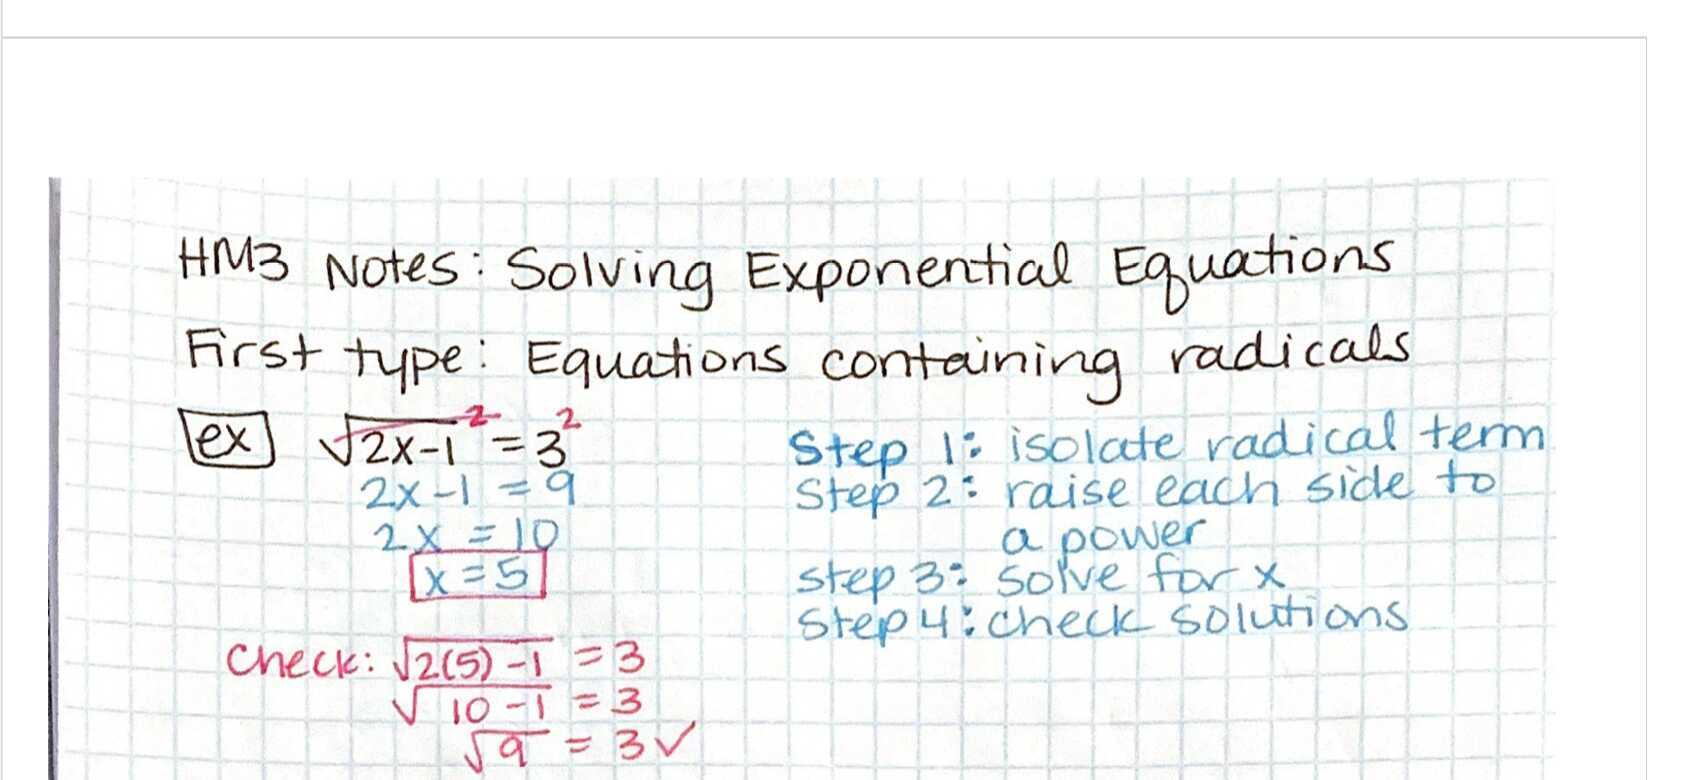 HM3 Notes: Solving Exponential Equations
First type: Equations containing radicals
ex √2x-1² = 3²
2x-1 = 9
2x = 10
x = 5
Step 1: isolate radical term
Step 2: raise each side to
a power
step 3: solve for x
Step 4: check solutions
Check: √2(5)-1 = 3
√10-1 = 3
√9 = 3 ✓